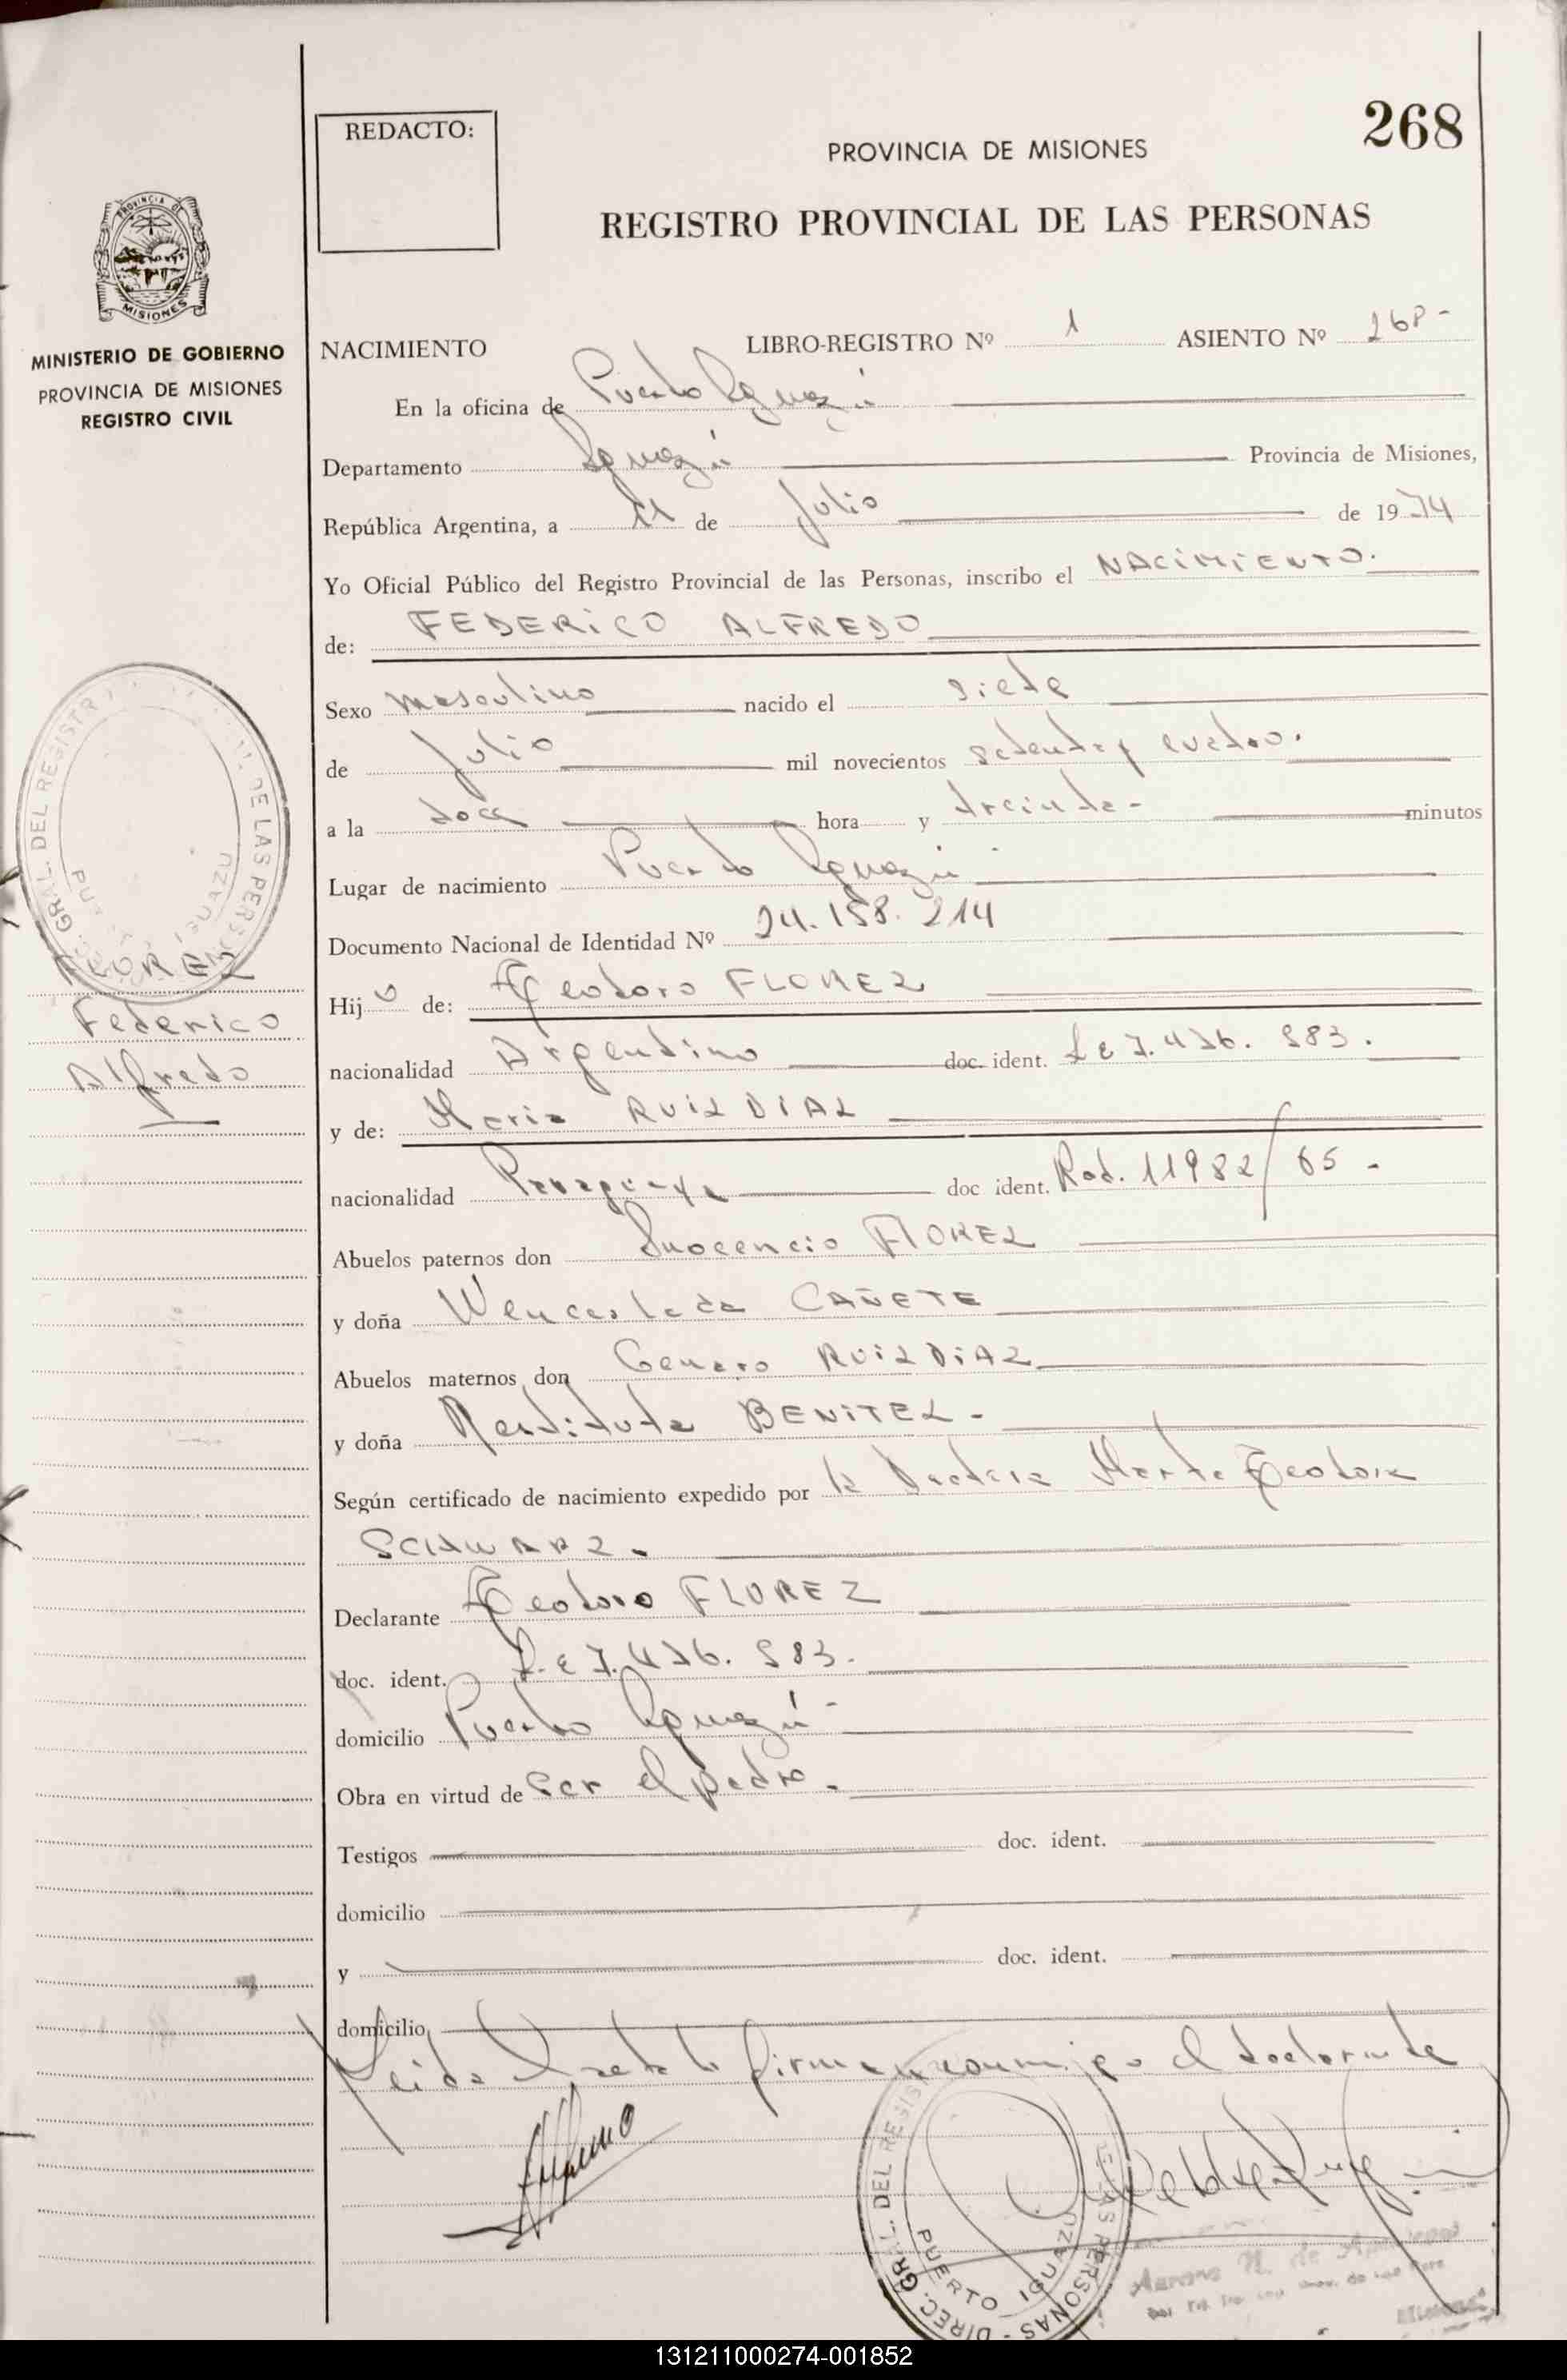 268
REDACTO:
PROVINCIA DE MISIONES
REGISTRO PROVINCIAL DE LAS PERSONAS
PROVINCIA DE
MISIONES
MINISTERIO DE GOBIERNO
PROVINCIA DE MISIONES
REGISTRO CIVIL
NACIMIENTO LIBRO-REGISTRO Nº 1 ASIENTO Nº 268-
En la oficina de Puerto Iguazú
Departamento Iguazú Provincia de Misiones,
República Argentina, a 11 de Julio de 1974
Yo Oficial Público del Registro Provincial de las Personas, inscribo el NACIMIENTO.
de: FEDERICO ALFREDO
Sexo masculino nacido el siete
de Julio mil novecientos setenta y cuatro.
a la doce hora y treinta- minutos
Lugar de nacimiento Puerto Iguazú
Documento Nacional de Identidad Nº 24.158.214
GRAL. DEL REGISTR DE LAS PERS
IGUAZU
FLOREZ
Federico
Alfredo
Hijo de: Teodoro FLOREZ
nacionalidad Argentino doc. ident. L E 7.476.583.
y de: Maria RUIZ DIAZ
nacionalidad Paraguaya doc ident. Rad. 11982/65-
Abuelos paternos don Inocencio FLOREZ
y doña Wenceslada CAÑETE
Abuelos maternos don Genaro RUIZ DIAZ
y doña Restituta BENITEZ-
Según certificado de nacimiento expedido por la Doctora Marta Teodora
SCHWARZ.
Declarante Teodoro FLOREZ
doc. ident. L.E 7.476.583.
domicilio Puerto Iguazú-
Obra en virtud de ser el padre.
Testigos doc. ident.
domicilio
y doc. ident.
domicilio
Leida el acta la firman conmigo el declarante
DIREC. GRAL. DEL REGIS LAS PERSONAS
PUERTO IGUAZU
131211000274-001852